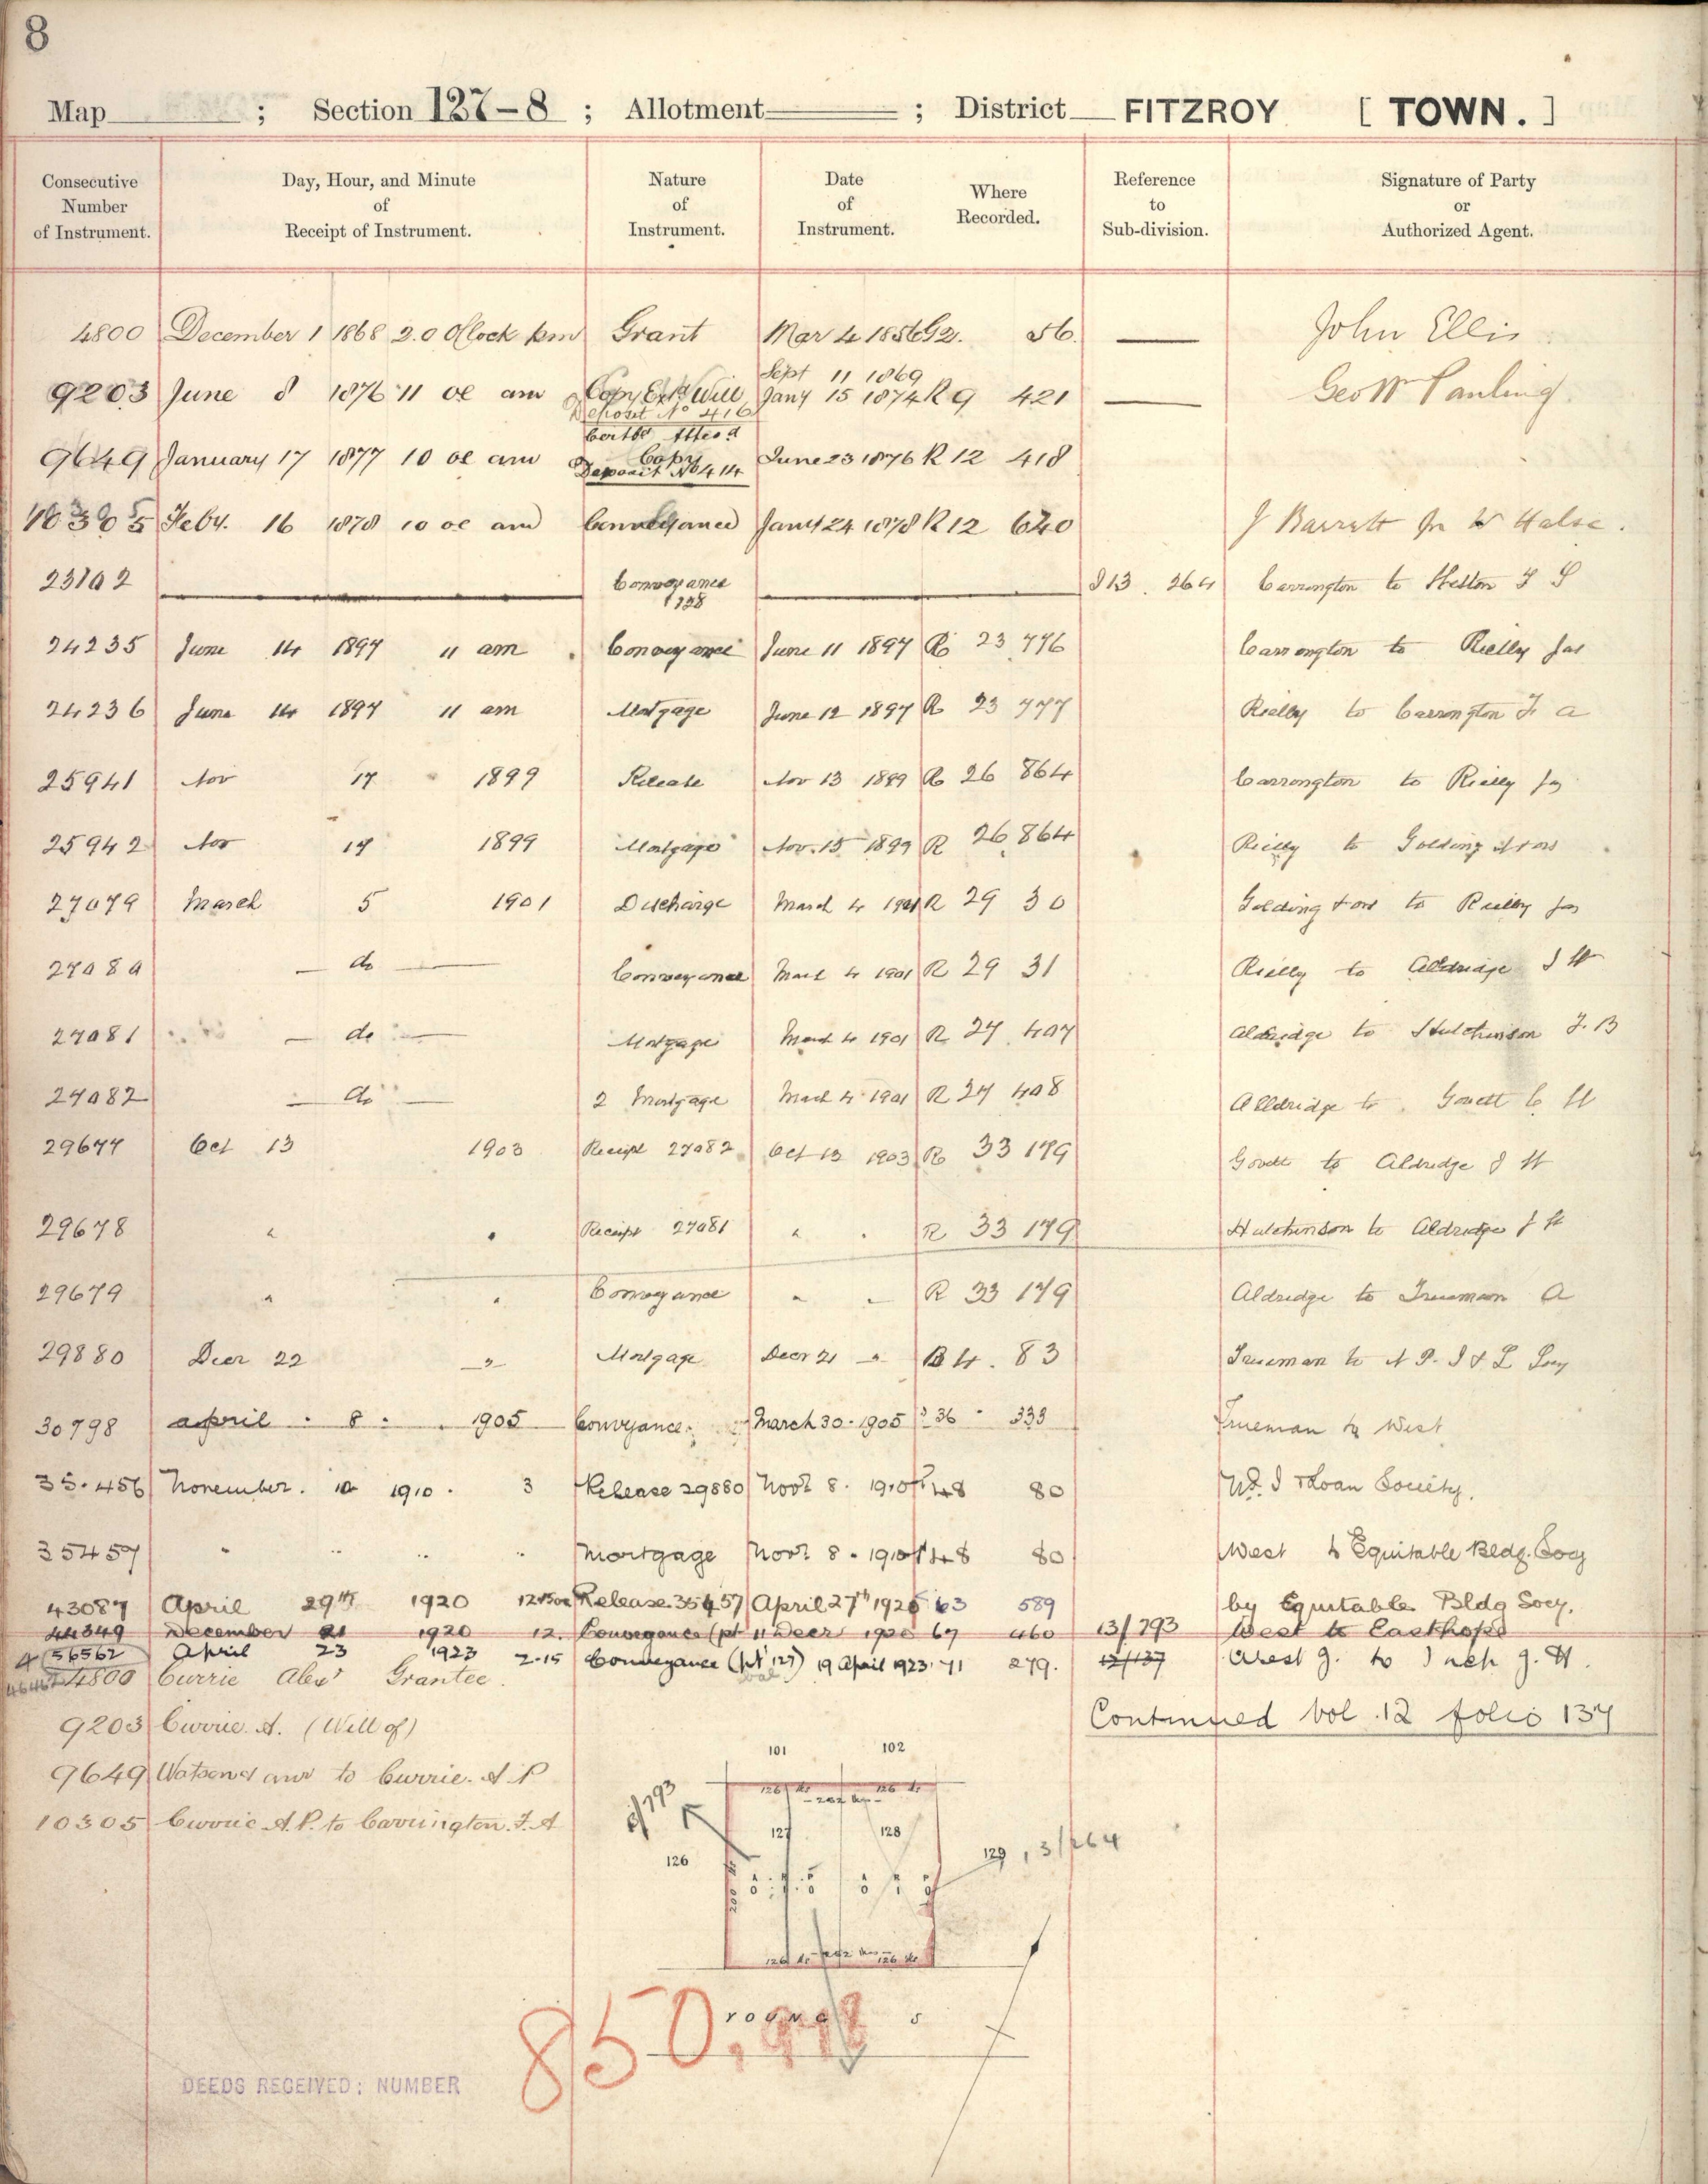 8
Map ; Section 127-8 ; Allotment ; District FITZROY [ TOWN. ]
Consecutive Number of Instrument. Day, Hour, and Minute of Receipt of Instrument. Nature of Instrument. Date of Instrument. Where Recorded. Reference to Sub-division. Signature of Party or Authorized Agent.
4800 December 1 1868 2.0 Oclock pm Grant Mar 4 1856 G2. 56. John Ellis
Sept 11 1869
9203 June 8 1876 11 oc am Copy Will Jany 15 1874 R 9 421 Geo W Pauling.
Deposit No 416
Certfd Attesd
9649 January 17 1877 10 oc am Copy June 23 1876 R 12 418
Deposit No 414
10305 Feby. 16 1878 10 oc am Conveyance Jany 24 1878 R 12 620 J Barratt for W Halse.
23102 Conveyance 128 13. 264 Carrington to
24235 June 14 1897 11 am Conveyance June 11 1897 R 23 776 Carrington to Rielly Jas
24236 June 14 1897 11 am Mortgage June 12 1897 R 23 777 Rielly to Carrington F a
25941 Nov 17 1899 Release Nov 13 1899 R 26 864 Carrington to Rielly Jas
25942 Nov 17 1899 Mortgage Nov. 15 1899 R 26 864 Rielly to Golding & ors
27079 March 5 1901 Discharge March 4 1901 R 29 30 Golding & ors to Rielly Jas
27080 — do — Conveyance March 4 1901 R 29 31 Rielly to Aldridge J H
27081 — do — Mortgage March 4 1901 R 27 407 Aldridge to Hutchinson F. B
27082 — do — 2 Mortgage March 4 1901 R 27 408 Aldridge to Govett C H
29677 Oct 13 1903 Receipt 27082 Oct 13 1903 R 33 179 Govett to Aldridge J H
29678 " " Receipt 27081 " " R 33 179 Hutchinson to Aldridge J H
29679 " " Conveyance " " R 33 179 Aldridge to Trueman A
29880 Decr 22 " Mortgage Decr 21 " B 4. 83 Trueman to N P. I & L Socy
30798 April 8 1905 Conveyance March 30 1905 36 333 Trueman to West
35.456 November. 10 1910. 3 Release 29880 Novr 8. 1910 48 80 N.P. I & Loan Society.
35457 " " " " Mortgage Novr 8. 1910 48 80 West to Equitable Bldg. Socy
43087 April 29th 1920 12 Release 35457 April 27th 1920 63 589 by Equitable Bldg Socy.
44349 December 21 1920 12. Conveyance (pt 11 Decr 1920 67 460 13/793 West to Easthope
56562 April 23 1923 2.15 Conveyance (pt 127) 19 April 1923. 71 279. 12/137 West J. to Inch J. H.
4800 Currie Alexr Grantee.
Continued Vol. 12 folio 137
9203 Currie. A. (Will of)
9649 Watson & anr to Currie. A P
10305 Currie A.P. to Carrington. F. A
101 102
126 lks 126 lks
252 lks
/793
127 128
126
129, 3/264
200 lks
126 lks 252 lks 126 lks
YOUNG S
850,978
DEEDS RECEIVED: NUMBER